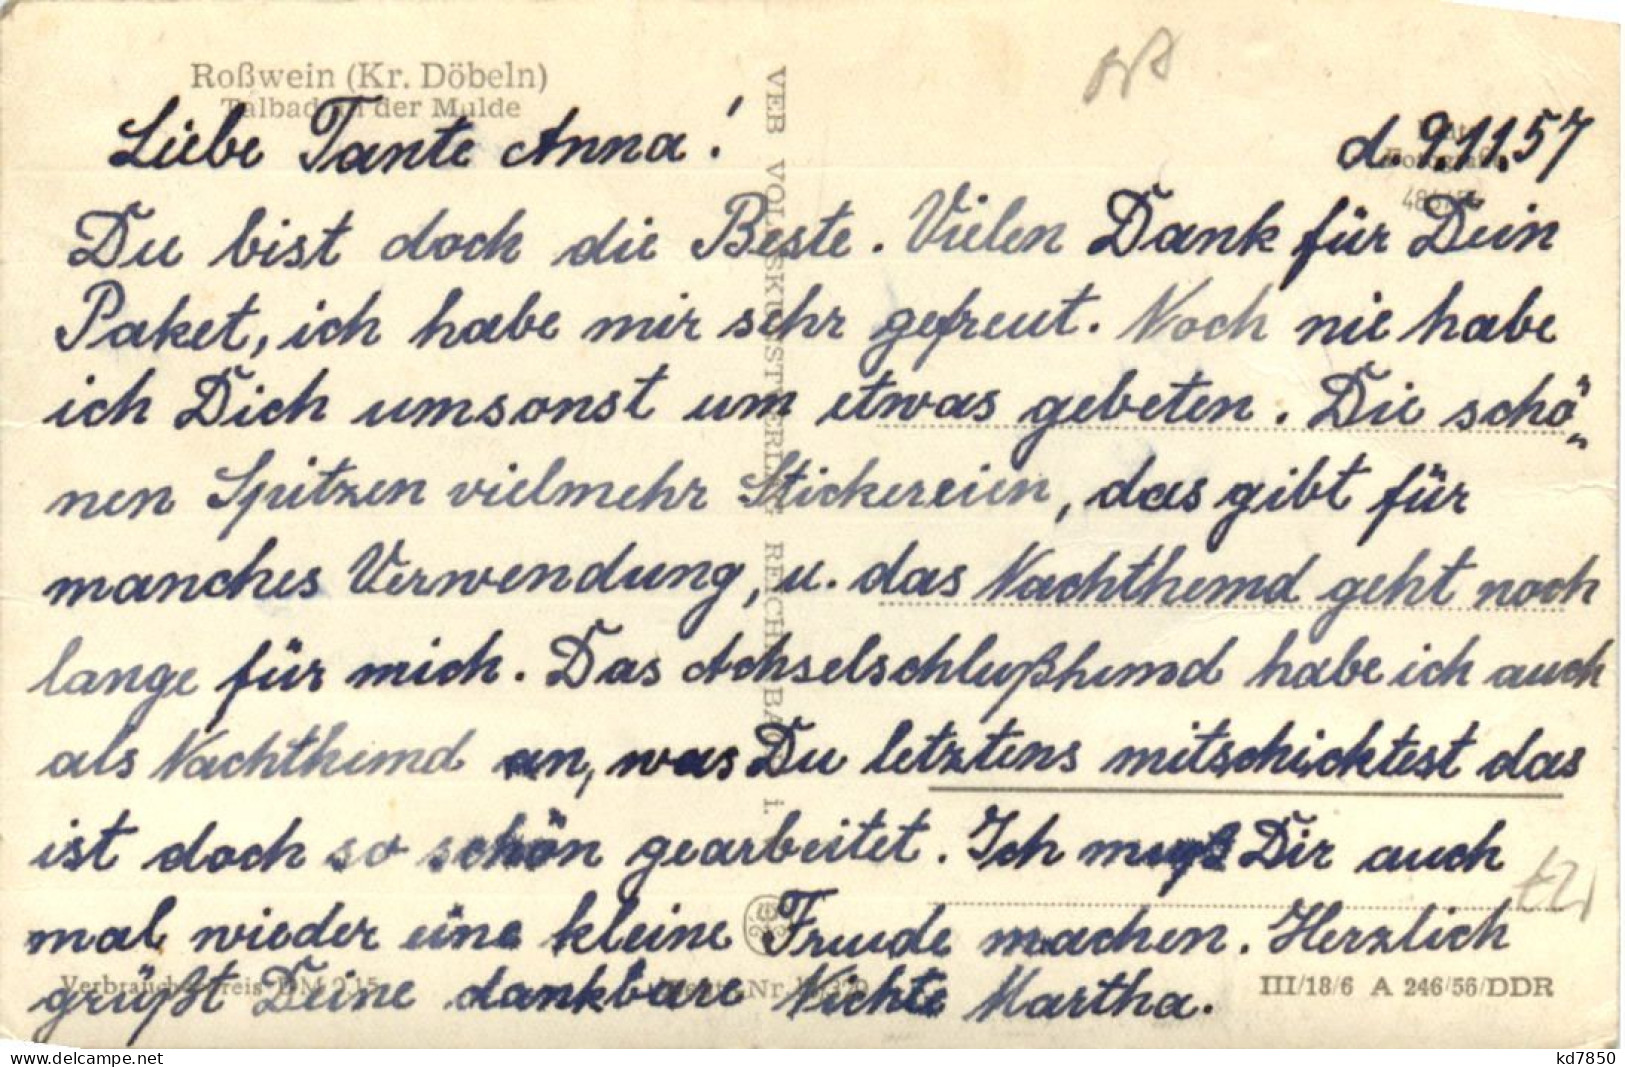 Roßwein (Kr. Döbeln)
Talbad an der Mulde
Liebe Tante Anna!
d. 9.11.57
Du bist doch die Beste. Vielen Dank für Dein
Paket, ich habe mir sehr gefreut. Noch nie habe
ich Dich umsonst um etwas gebeten. Die schö„
nen Spitzen vielmehr Stickereien, das gibt für
manches Verwendung, u. das Nachthemd geht noch
lange für mich. Das Achselschlußhemd habe ich auch
als Nachthemd an, was Du letztens mitschicktest das
ist doch so schön gearbeitet. Ich muß Dir auch
mal wieder eine kleine Freude machen. Herzlich
grüßt Deine dankbare Nichte Martha.
VEB VOLKSKUNSTVERLAG REICHENBACH i.
III/18/6 A 246/56/DDR
kd7850